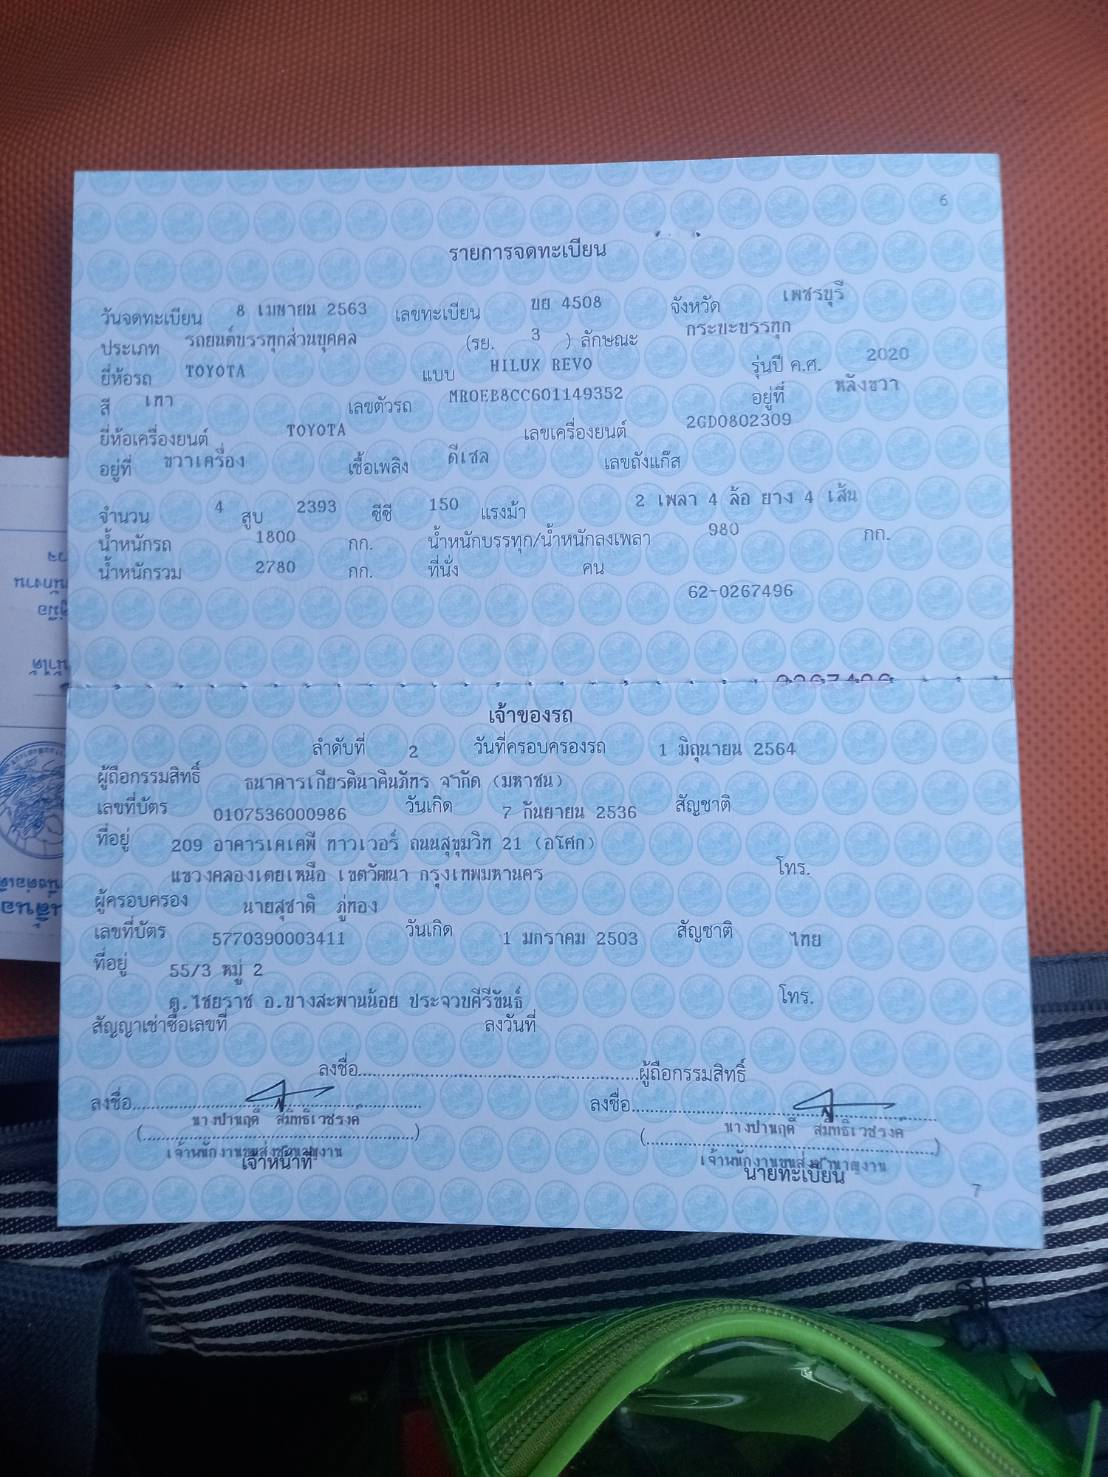 6
รายการจดทะเบียน
วันจดทะเบียน 8 เมษายน 2563 เลขทะเบียน ขย 4508 จังหวัด เพชรบุรี
ประเภท รถยนต์บรรทุกส่วนบุคคล (รย. 3 ) ลักษณะ กระบะบรรทุก
ยี่ห้อรถ TOYOTA แบบ HILUX REVO รุ่นปี ค.ศ. 2020
สี เทา เลขตัวรถ MR0EB8CCG01149352 อยู่ที่ หลังขวา
ยี่ห้อเครื่องยนต์ TOYOTA เลขเครื่องยนต์ 2GD0802309
อยู่ที่ ขวาเครื่อง เชื้อเพลิง ดีเซล เลขถังแก๊ส
จำนวน 4 สูบ 2393 ซีซี 150 แรงม้า 2 เพลา 4 ล้อ ยาง 4 เส้น
น้ำหนักรถ 1800 กก. น้ำหนักบรรทุก/น้ำหนักลงเพลา 980 กก.
น้ำหนักรวม 2780 กก. ที่นั่ง คน
62-0267496
เจ้าของรถ
ลำดับที่ 2 วันที่ครอบครองรถ 1 มิถุนายน 2564
ผู้ถือกรรมสิทธิ์ ธนาคารเกียรตินาคินภัทร จำกัด (มหาชน)
เลขที่บัตร 0107536000986 วันเกิด 7 กันยายน 2536 สัญชาติ
ที่อยู่ 209 อาคารเคเคพี ทาวเวอร์ ถนนสุขุมวิท 21 (อโศก)
แขวงคลองเตยเหนือ เขตวัฒนา กรุงเทพมหานคร โทร.
ผู้ครอบครอง นายสุชาติ ภู่ทอง
เลขที่บัตร 5770390003411 วันเกิด 1 มกราคม 2503 สัญชาติ ไทย
ที่อยู่ 55/3 หมู่ 2
ต.ไชยราช อ.บางสะพานน้อย ประจวบคีรีขันธ์ โทร.
สัญญาเช่าซื้อเลขที่ ลงวันที่
ลงชื่อ........................................ผู้ถือกรรมสิทธิ์
ลงชื่อ........................................ ลงชื่อ........................................
นางปานฤดี สมิทธิเวชรงค์ นางปานฤดี สมิทธิเวชรงค์
(........................................) (........................................)
เจ้าพนักงานขนส่งชำนาญงาน เจ้าพนักงานขนส่งชำนาญงาน
เจ้าหน้าที่ นายทะเบียน
7